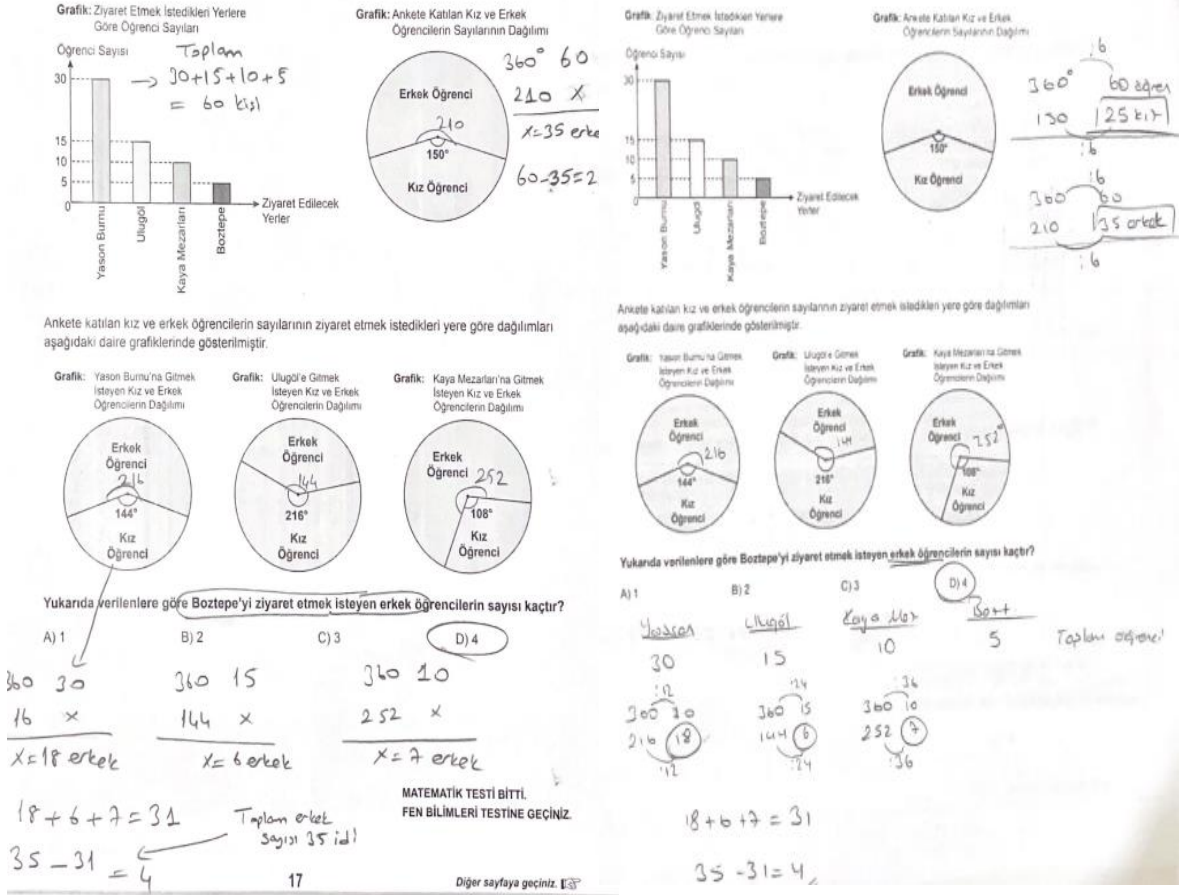 Grafik: Ziyaret Etmek İstedikleri Yerlere
Göre Öğrenci Sayıları
Öğrenci Sayısı
Toplam
→ 30+15+10+5
= 60 kişi
30
15
10
5
0
Yason Burnu
Ulugöl
Kaya Mezarları
Boztepe
Ziyaret Edilecek
Yerler
Grafik: Ankete Katılan Kız ve Erkek
Öğrencilerin Sayılarının Dağılımı
Erkek Öğrenci
210
150°
Kız Öğrenci
360° 60
210 x
x=35 erke
60-35=2
Ankete katılan kız ve erkek öğrencilerin sayılarının ziyaret etmek istedikleri yere göre dağılımları
aşağıdaki daire grafiklerinde gösterilmiştir.
Grafik: Yason Burnu'na Gitmek
İsteyen Kız ve Erkek
Öğrencilerin Dağılımı
Erkek
Öğrenci
216
144°
Kız
Öğrenci
Grafik: Ulugöl'e Gitmek
İsteyen Kız ve Erkek
Öğrencilerin Dağılımı
Erkek
Öğrenci
144
216°
Kız
Öğrenci
Grafik: Kaya Mezarları'na Gitmek
İsteyen Kız ve Erkek
Öğrencilerin Dağılımı
Erkek
Öğrenci
252
108°
Kız
Öğrenci
Yukarıda verilenlere göre Boztepe'yi ziyaret etmek isteyen erkek öğrencilerin sayısı kaçtır?
A) 1 B) 2 C) 3 D) 4
360 30
16 x
x=18 erkek
360 15
144 x
x=6 erkek
360 10
252 x
x=7 erkek
18+6+7=31
35-31=4
Toplam erkek
sayısı 35 idi
MATEMATİK TESTİ BİTTİ.
FEN BİLİMLERİ TESTİNE GEÇİNİZ.
17
Diğer sayfaya geçiniz.
Grafik: Ziyaret Etmek İstedikleri Yerlere
Göre Öğrenci Sayıları
Öğrenci Sayısı
30
15
10
5
0
Yason Burnu
Ulugöl
Kaya Mezarları
Boztepe
Ziyaret Edilecek
Yerler
Grafik: Ankete Katılan Kız ve Erkek
Öğrencilerin Sayılarının Dağılımı
Erkek Öğrenci
150°
Kız Öğrenci
:6
360° 60 öğren
150 25 kız
:6
:6
360 60
210 35 erkek
:6
Ankete katılan kız ve erkek öğrencilerin sayılarının ziyaret etmek istedikleri yere göre dağılımları
aşağıdaki daire grafiklerinde gösterilmiştir.
Grafik: Yason Burnu'na Gitmek
İsteyen Kız ve Erkek
Öğrencilerin Dağılımı
Erkek
Öğrenci
216
144°
Kız
Öğrenci
Grafik: Ulugöl'e Gitmek
İsteyen Kız ve Erkek
Öğrencilerin Dağılımı
Erkek
Öğrenci
144
216°
Kız
Öğrenci
Grafik: Kaya Mezarları'na Gitmek
İsteyen Kız ve Erkek
Öğrencilerin Dağılımı
Erkek
Öğrenci
252°
108°
Kız
Öğrenci
Yukarıda verilenlere göre Boztepe'yi ziyaret etmek isteyen erkek öğrencilerin sayısı kaçtır?
A) 1 B) 2 C) 3 D) 4
Ulugöl Kaya Mez
30 15 10 5 Toplam
:12
360 30
216 18
:12
:24
360 15
144 6
:24
:36
360 10
252 7
:36
18+6+7=31
35-31=4